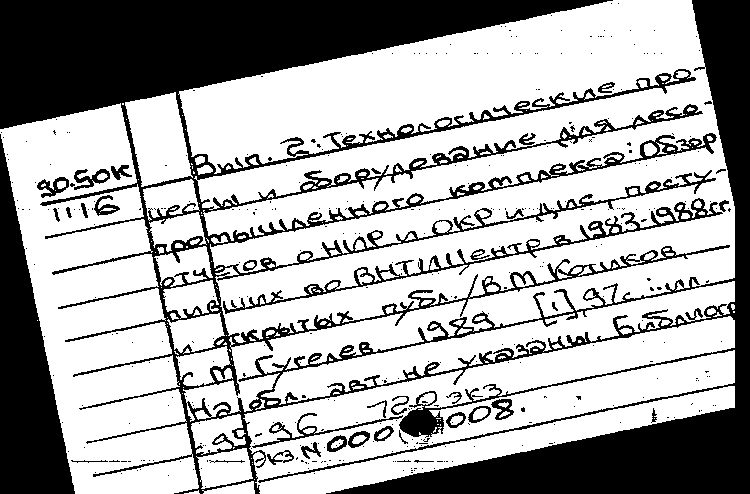 90.50К
1116
Вып. 2: Технологические про-
цессы и оборудование для лесо-
промышленного комплекса: Обзор
отчетов о НИР и ОКР и дис., посту-
пивших во ВНТИЦентр в 1983-1988гг.
и открытых публ. / В.М. Котиков,
С.М. Гугелев. 1989. [1], 97с.: ил.
На обл. авт. не указаны. Библиогр
с 95-96. 720 экз.
Экз. N 000 008.